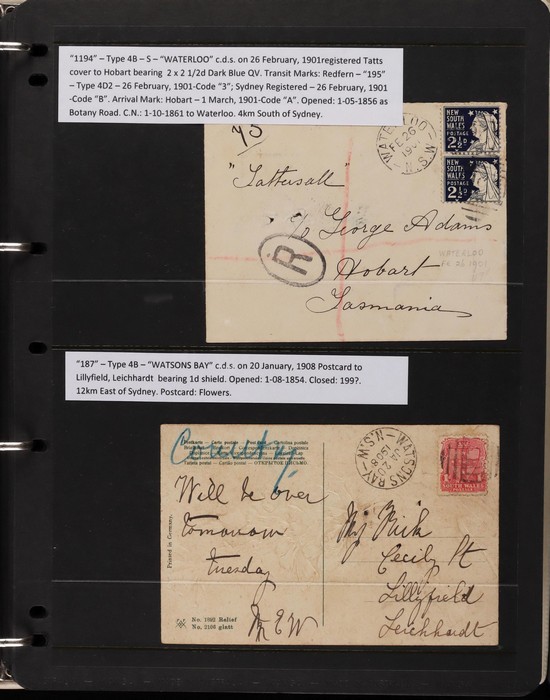 "1194" – Type 4B – S – "WATERLOO" c.d.s. on 26 February, 1901registered Tatts
cover to Hobart bearing 2 x 2 1/2d Dark Blue QV. Transit Marks: Redfern – "195"
– Type 4D2 – 26 February, 1901-Code "3"; Sydney Registered – 26 February, 1901
-Code "B". Arrival Mark: Hobart – 1 March, 1901-Code "A". Opened: 1-05-1856 as
Botany Road. C.N.: 1-10-1861 to Waterloo. 4km South of Sydney.
WATERLOO
FE 26
1901
N.S.W
NEW
SOUTH
WALES
POSTAGE
2½D
NEW
SOUTH
WALES
POSTAGE
2½D
"Tattersall"
c/o George Adams
Hobart
Tasmania
R
WATERLOO
FE 26 1901
"187" – Type 4B – "WATSONS BAY" c.d.s. on 20 January, 1908 Postcard to
Lillyfield, Leichhardt bearing 1d shield. Opened: 1-08-1854. Closed: 199?.
12km East of Sydney. Postcard: Flowers.
Country
WATSONS BAY
JA 20
1908
N.S.W
SOUTH WALES
Will be over
tomorrow
Tuesday
M E W
Cecily St
Lillyfield
Leichhardt
Printed in Germany.
No. 1092 Relief
No. 2106 glatt